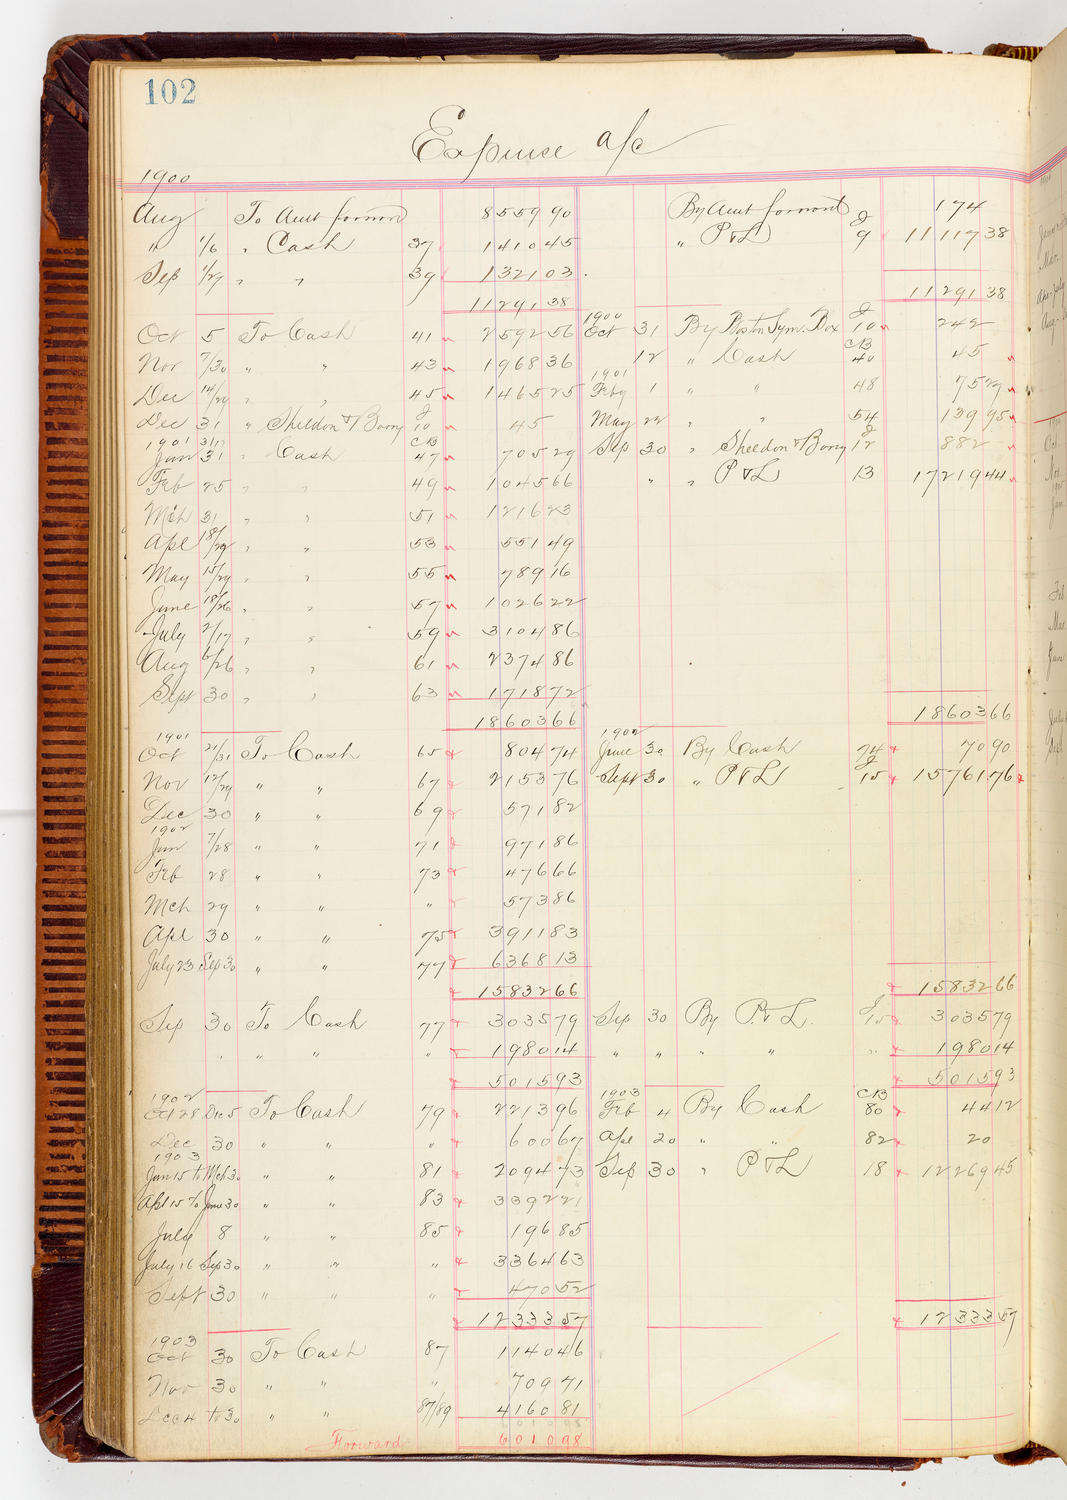 102
Expense a/c
1900
Aug To Amt forward 8559 90 By Amt forward 174
" 1/6 " Cash 37 1410 45 " P & L J 9 11117 38
Sep 1/29 " " 39 1321 03
11291 38 11291 38
Oct 5 To Cash 41 2592 56 1900 Oct 31 By Boston Sym. Box J 10 242
Nov 7/30 " " 43 1968 36 12 " Cash CB 40 45
Dec 14/29 " " 45 1465 25 1901 Feby 1 " " 48 75 29
Dec 31 " Sheldon & Barry J 10 45 May 22 " " 54 139 95
1901 Jan 31 " Cash CB 47 705 29 Sep 30 " Sheldon & Barry J 12 882
Feb 25 " " 49 1045 66 " " P & L 13 17219 44
Mch 31 " " 51 1216 23
Apl 18/29 " " 53 551 49
May 15/29 " " 55 789 16
June 18/26 " " 57 1026 22
July 2/17 " " 59 3104 86
Aug 6/26 " " 61 2374 86
Sept 30 " " 63 1718 72
18603 66 18603 66
1901 1902
Oct 21/31 To Cash 65 804 74 June 30 By Cash 74 70 90
Nov 12/29 " " 67 2153 76 Sept 30 " P & L J 15 15761 76
Dec 30 " " 69 571 82
1902
Jan 7/28 " " 71 971 86
Feb 28 " " 73 476 66
Mch 29 " " " 573 86
Apl 30 " " 75 3911 83
July 23 Sep 30 " " 77 6368 13
15832 66 15832 66
Sep 30 To Cash 77 3035 79 Sep 30 By P. & L. J 15 3035 79
" " " " 1980 14 " " " " " 1980 14
5015 93 5015 93
1902 1903
Oct 28 Dec 5 To Cash 79 2213 96 Feb 4 By Cash CB 80 44 12
Dec 30 " " " 600 67 Apl 20 " " 82 20
1903
Jan 15 to Mch 30 " " 81 2094 73 Sep 30 " P & L 18 12269 45
Apl 15 to June 30 " " 83 3392 21
July 8 " " 85 196 85
July 16 Sep 30 " " " 3364 63
Sept 30 " " " 470 52
12333 57 12333 57
1903
Oct 30 To Cash 87 1140 46
Nov 30 " " " 709 71
Dec 4 to 30 " " 87/89 4160 81
6010 98
Forward 6010 98